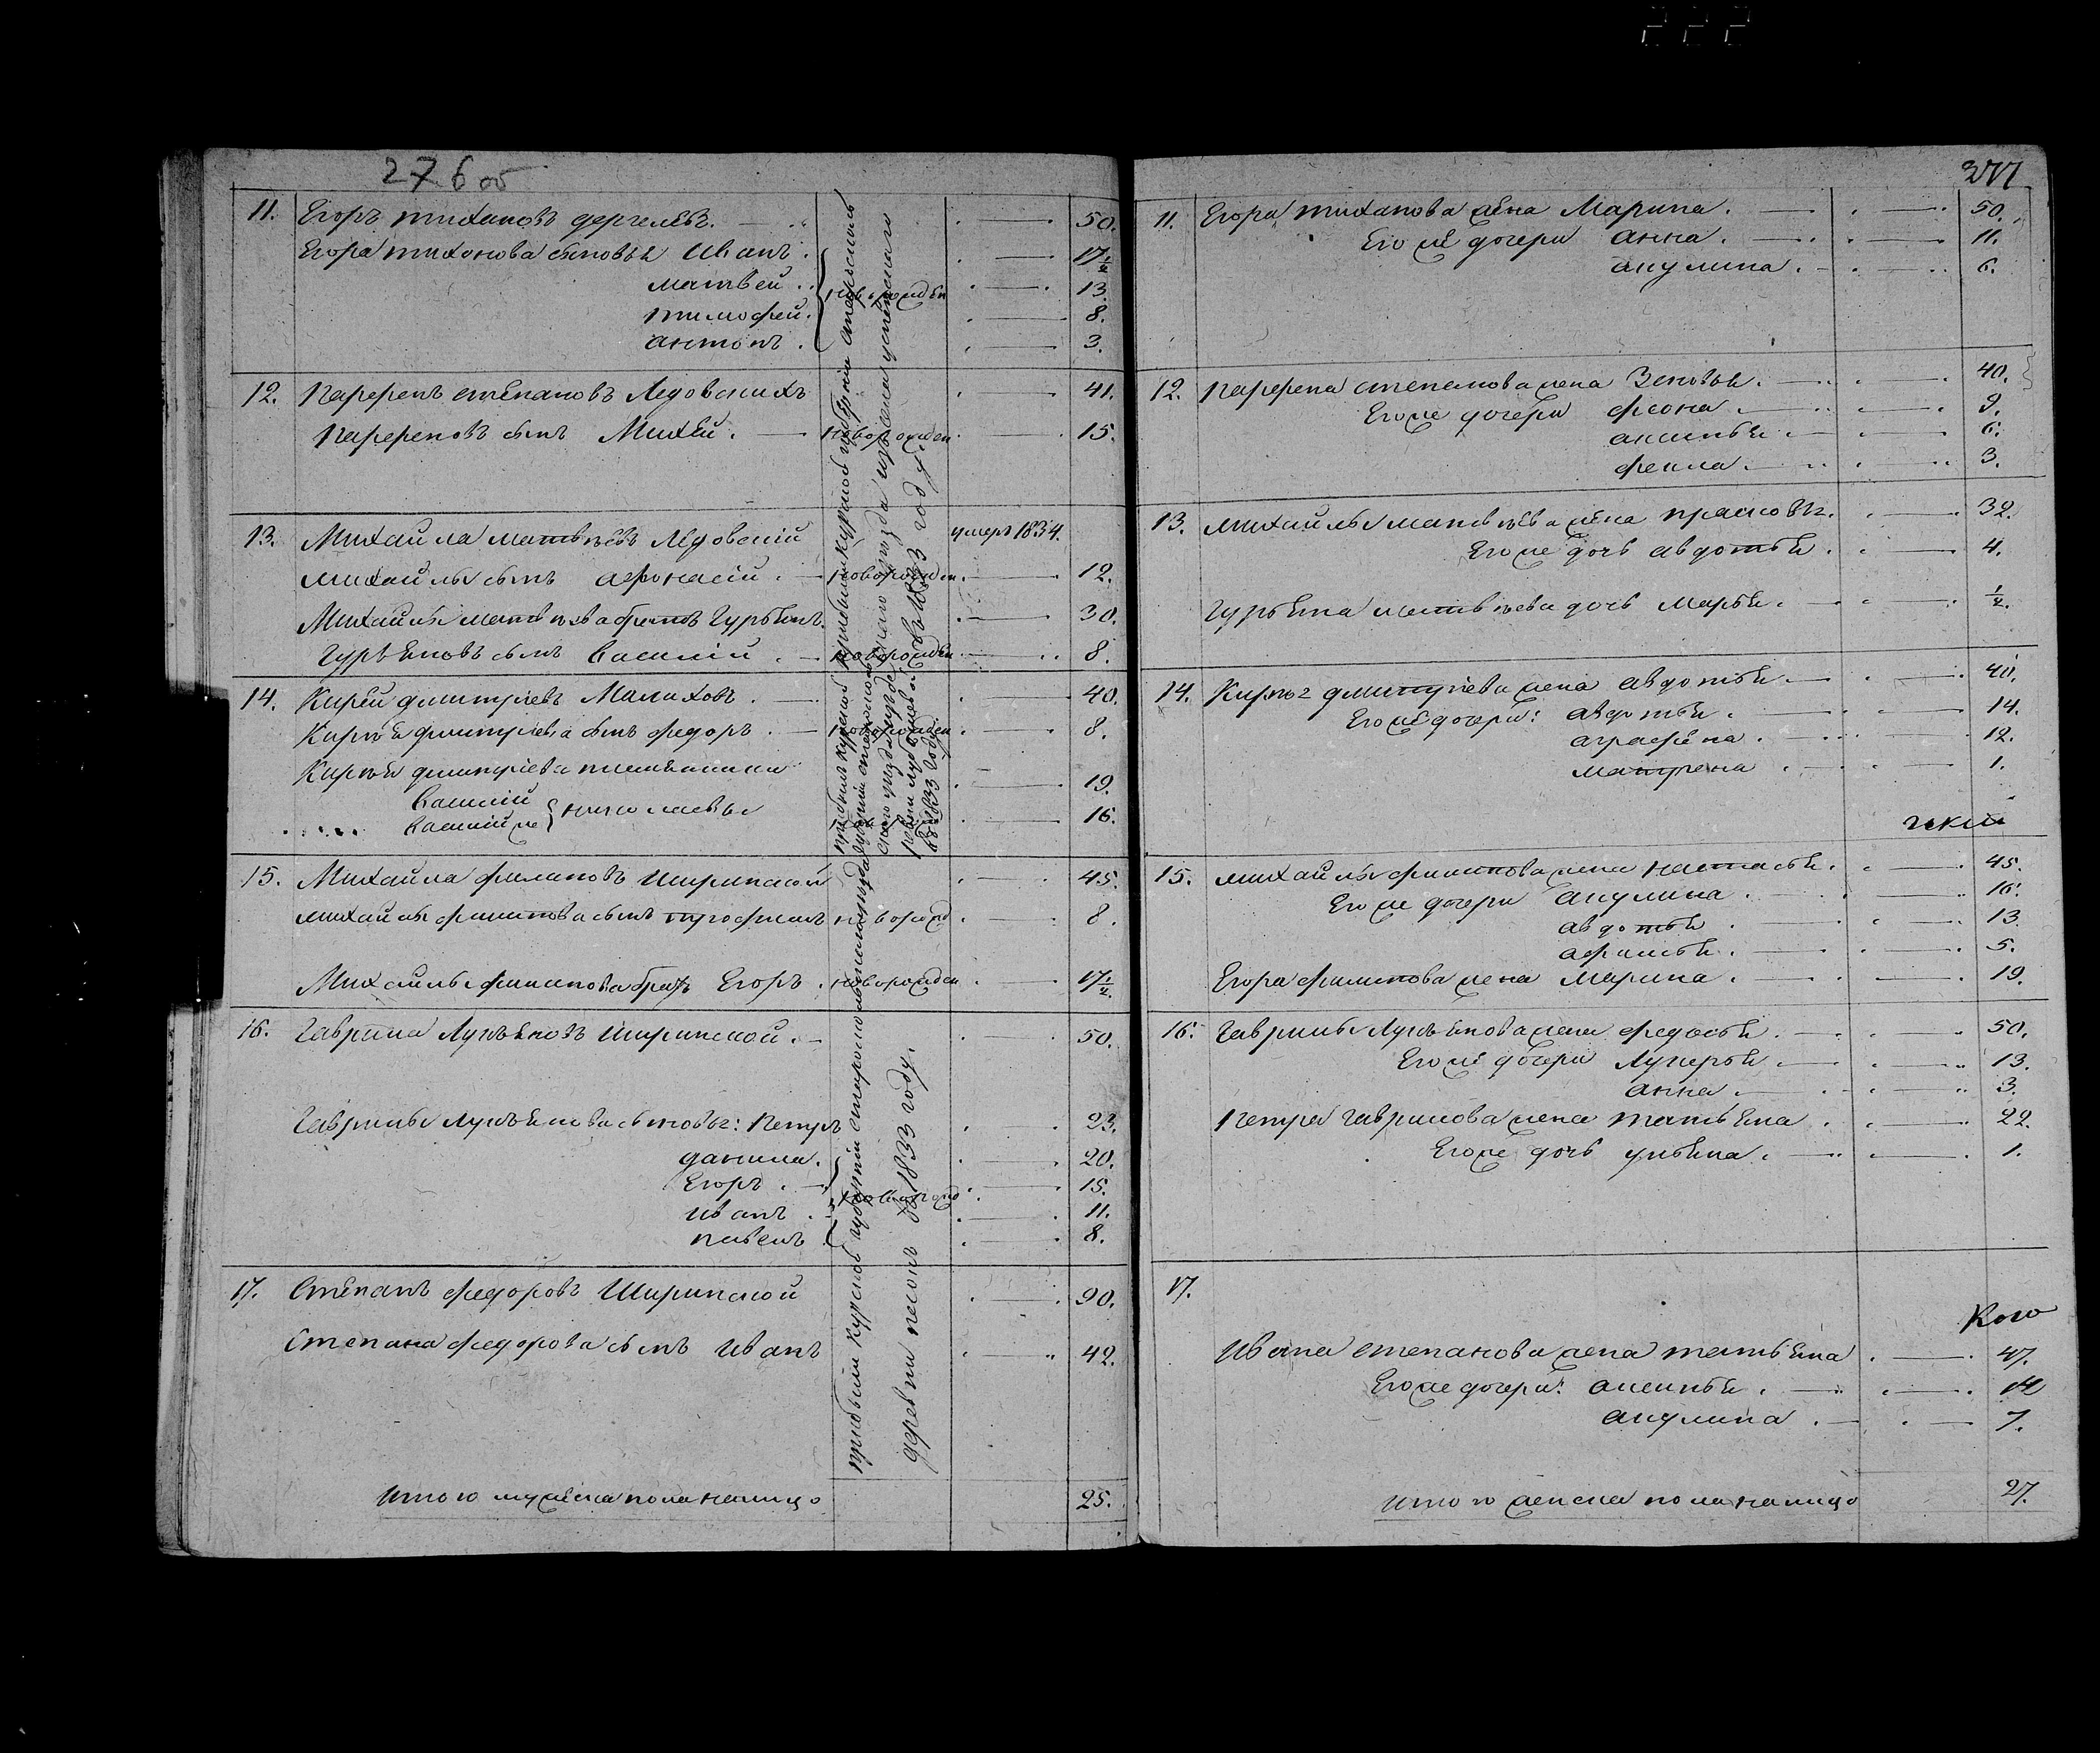 276 об
11. Егоръ тихановъ дергелевъ. 50.
Егора тихонова сыновья Иванъ. 17½
матвей. новорожден 13.
тимофей. 8.
антонъ. 3.
12. Парфенъ степановъ Ледовскихъ 41.
Парфеновъ сынъ Михей. новорожден. 15.
13. Михайла матвѣевъ Ледовскій умеръ 1834.
михайлы сынъ афонасій. новорожден. 12.
Михайлы матвѣева братъ Гурьянъ. 30.
Гурьяновъ сынъ василій. новорожден 8.
14. Кирей дмитріевъ Малаховъ. 40.
Кирѣя дмитріева сынъ федоръ. новорожден. 8.
Кирѣя дмитріева племянники
василій 19.
василій же николаевы 16.
15. Михайла филиповъ Ширинской 45.
михайлы филипова сынъ трофимъ новорожд. 8.
Михайлы филипова братъ Егоръ. новорожден 17½
16. Гаврила Лукьяновъ Ширинской. 50.
Гаврилы Лукьянова сыновья: Петръ 23.
данила. 20.
Егоръ. новорожд 15.
иванъ. 11.
павелъ 8.
17. Степанъ федоровъ Ширинской 90.
Степана федорова сынъ Иванъ 42.
прибыли Курской губерніи старооскольскаго уѣзда
деревни песокъ въ 1833 году.
Итого мужеска пола налицо 25.
277
11. Егора тиханова жена Марина. 50.
Его же дочери анна. 11.
акулина. 6.
12. парфена степанова жена Зеновья. 40.
Его же дочери феона. 9.
аксинья. 6.
фекла. 3.
13. михайлы матвѣева жена прасковья. 32.
Его же дочь авдотья. 4.
Гурьяна матвѣева дочь Марья. ½.
14. Кирѣя дмитріева жена авдотья. 40.
Его же дочери: авдотья. 14.
аграфена. 12.
матрена. 1.
15. михайлы филипова жена настасья. 45.
Его же дочери акулина. 16.
авдотья 13.
афимья. 5.
Егора филипова жена Марина. 19.
16. Гаврилы Лукьянова жена федосья. 50.
Его же дочери Лукерья. 13.
анна. 3.
Петра гаврилова жена татьяна. 22.
Его же дочь ульяна. 1.
17.
Ивана степанова жена татьяна 47.
Его же дочери: аксинья. 14
акулина. 7.
итого женска пола налицо 27.